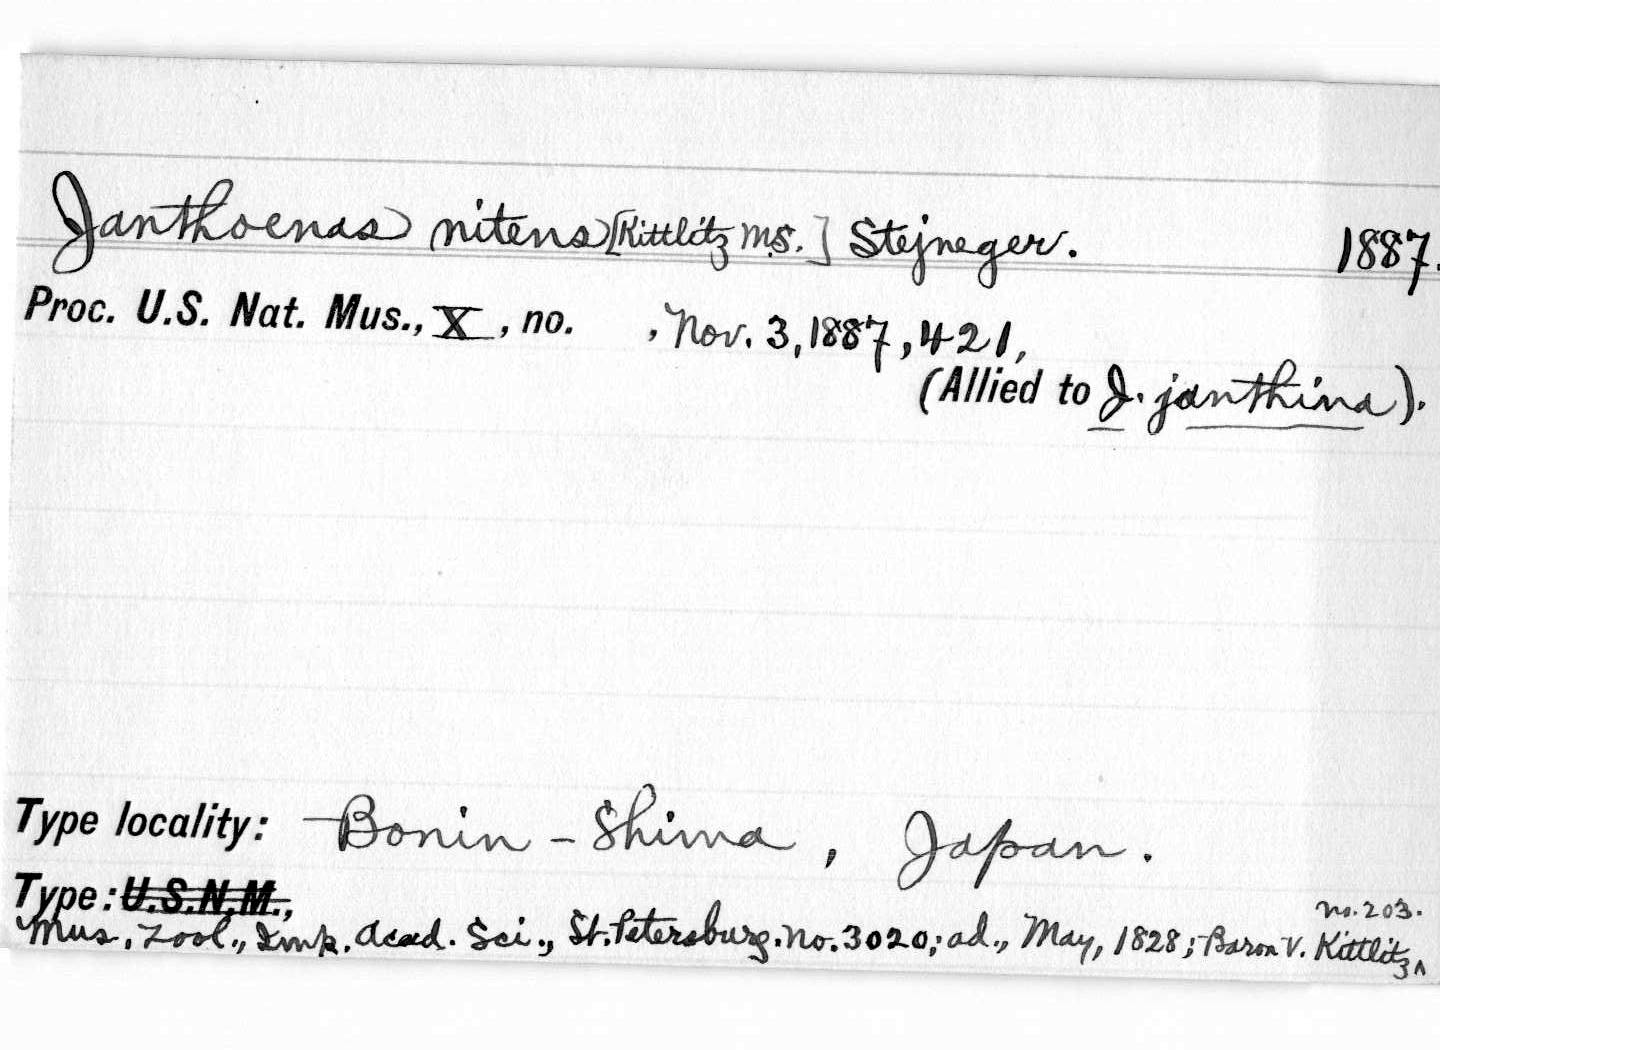 Janthoenas nitens [Kittlitz MS.] Stejneger. 1887.
Proc. U.S. Nat. Mus., X, no. , Nov. 3, 1887, 421,
(Allied to J. janthina).
Type locality: Bonin-Shima, Japan.
Type: U.S.N.M.,
no. 203.
Mus. Zool., Imp. Acad. Sci., St. Petersburg. No. 3020; ad., May, 1828; Baron V. Kittlitz ^